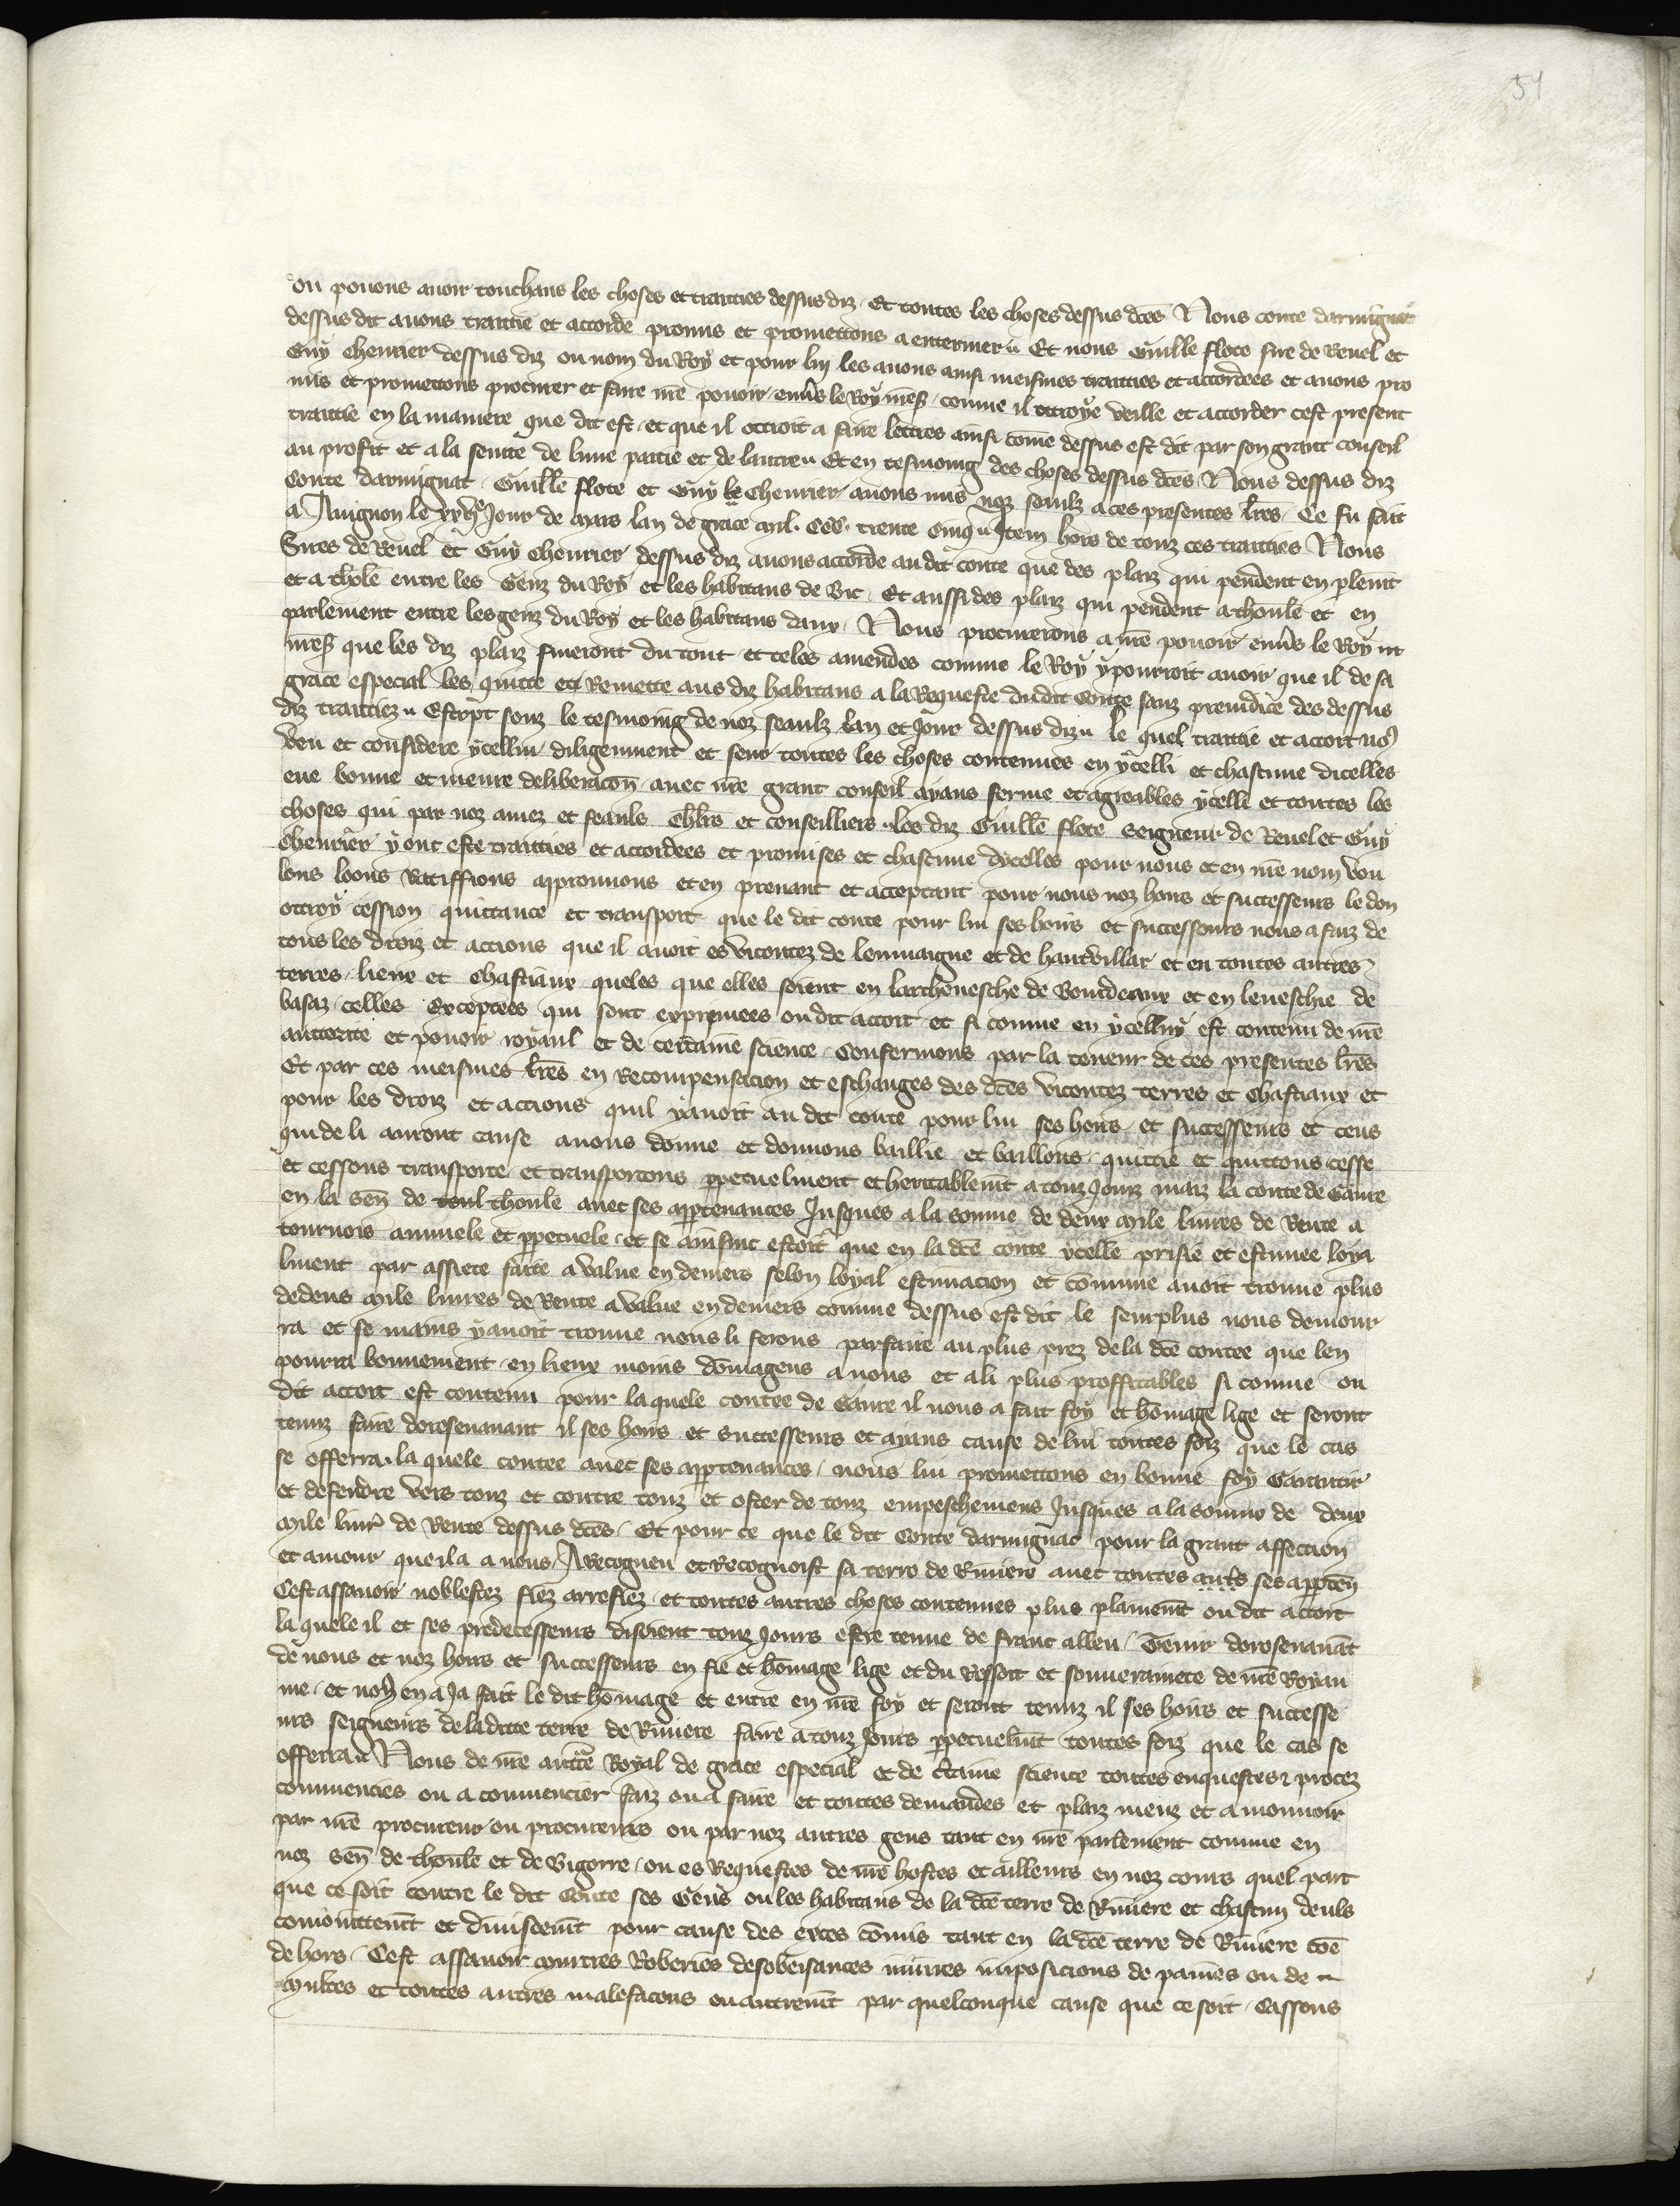 51
ou pouons auoir touchans les choses et traitties dessus diz. Et toutes les choses dessus dc̃es Nous conte darmignac
dessus dit auons traittie et accorde promis et promettons a enteriner. Et nous Guille flote sire de Reuel et
Guy cheurier dessus diz ou nom du Roy et pour luy les auons ainsi meismes traittiez et accordees et auons pro
mis et promettons procurer et faire nr̃e pouoir enuers le Roy nr̃es. comme il ottroye veille et accorder cest present
traittie en la maniere que dit est et que il ottroit a faire lettres ainsi com̃e dessus est dit par son grant conseil
au profit et a la seurte de lune partie et de lautre. Et en tesmoing des choses dessus dc̃es Nous dessus diz
Conte darmignac Guille flote et Guy le Cheurier auons mis noz seaulz a ces presentes lr̃es. Ce fu fait
a Auignon le xxvᵉ Jour de mars lan de grace mil. CCC. trente cinq. Item hors de touz ces traitties Nous
Sires de Reuel et Guy cheurier dessus diz auons accorde au dit conte que des plaiz qui pendent en plem̃t
et a thole entre les Genz du Roy et les habitans de Vic. Et aussi des plaiz qui pendent a thoulẽ et en
parlement entre les genz du Roy et les habitans daux. Nous procurerons a nr̃e pouoir enuers le Roy nr̃
nr̃es que les diz plaiz fineront du tout et teles amendes comme le Roy y pourroit auoir que il de sa
grace especial les quitte et Remette aus diz habitans a la Requeste dudit Conte sanz preiudice des dessus
diz traittiez. Escript souz le tesmoing de noz seaulz lan et Jour dessus diz. le quel traittie et accort no9
veu et considere ycellui diligemment et seur toutes les choses contenues en ycelli et chascune dicelles
eue bonne et meure deliberacõn auec nr̃e grant conseil ayans ferme et agreables ycelli et toutes les
choses qui par noz amez et feauls chl̃rs et conseilliers les diz Guillẽ flote seigneur de Reuel et Guy
Cheurier y ont este traitties et accordees et promises et chascune dycelles pour nous et en nr̃e nom vou
lons loons Ratiffions approuuons et en prenant et acceptant pour nous noz hoirs et successeurs le don
ottroy cession quittance et transport que le dit conte pour lui ses hoirs et successeurs nous a faiz de
tous les droiz et accions que il auoit es vicontez de lomaigne et de hautvillar et en toutes autres
terres lieux et chastiaux queles que elles soient en larcheuesche de Bourdeaux et en leuesche de
basaz celles exceptees qui sont exprimees ou dit accort et si comme en ycelluy est contenu de nr̃e
auctorite et pouoir royaul et de certaine science Confermons par la teneur de ces presentes lr̃es
Et par ces meismes lr̃es en Recompensacion et eschanges des dc̃es vicontez terres et chastiaux et
pour les droiz et accions quil y auoit au dit conte pour lui ses hoirs et successeurs et ceus
qui de li auront cause auons donne et donnons baillie et baillons quittie et quittons cesse
et cessons transporte et transportons ppetuelment et heritablem̃t a touz Jours maiz la conte de Gaure
en la sen̄ de toul thoule auec ses apptenances Jusques a la somme de deux mile liures de Rente a
tournois annuele et ppetuele et se ainsinc estoit que en la dc̃e conte ycelle prisie et estimee loya
lment par assiete faite a value en deniers selon loyal estimacion et com̃me auoit trouue plus
dedeus mile liures de Rente a value en deniers comme dessus est dit le seurplus nous demour
ra et se mains y auoit trouue nous li ferons parfaire au plus prez de la dc̃e contee que len
pourra bonnement en lieux moins dom̃ageus a nous et a li plus proffitables si comme ou
dit accort est contenu pour la quele contee de Gaure il nous a fait foy et hom̃age lige et seront
tenuz faire doresenauant il ses hoirs et successeurs et ayans cause de lui toutes foiz que le cas
se offerra. la quele contee auec ses apptenances nous lui promettons en bonne foy Garantir
et deffendre vers touz et contre touz et oster de touz empeschemens Jusques a la somme de deux
mile liur̃ de Rente dessus dc̃es. Et pour ce que le dit Conte darmignac pour la grant affection
et amour que il a a nous A Recogneu et Recognoist sa terre de Riuiere auec toutes aut̃s ses appten̄
Cest assauoir noblescez fiez arrefiez et toutes autres choses contenues plus plainem̃t ou dit accort
la quele il et ses predecesseurs disoient touz Jours estre tenue de franc alleu Tenir doresenauãt
de nous et noz hoirs et successeurs en fie et hom̃age lige et du Ressort et souuerainete de nr̃e Royau
me et no9 en a Ja fait le dit hom̃age et entre en nr̃e foy et seront tenuz il ses hoirs et successe
urs seigneurs de ladicte terre de Riuiere faire a touz Jours ppetuelm̃t toutes foiz que le cas se
offerra. Nous de nr̃e auct̃e Royal de grace especial et de c̃taine science toutes enquestes & procez
commencies ou a commencier faiz ou a faire et toutes demandes et plaiz meuz et a mouuoir
par nr̃e procureur ou procureurs ou par noz autres gens tant en nr̃e parlement comme en
noz sen̄ de thoulẽ et de Bigorre ou es Requestes de nr̃e hostes et ailleurs en noz cours quel part
que ce soit contre le dit Conte ses Gens ou les habitans de la dc̃e terre de Riuiere et chascun deuls
coniointem̃t et diuisem̃t pour cause des exces com̃is tant en la dc̃e terre de Riuiere com̃e
dehors Cest assauoir murtres Roberies desobeissances iniures imposicions de paines ou de
multes et toutes autres malefacons ou autrem̃t par quelconque cause que ce soit Cassons